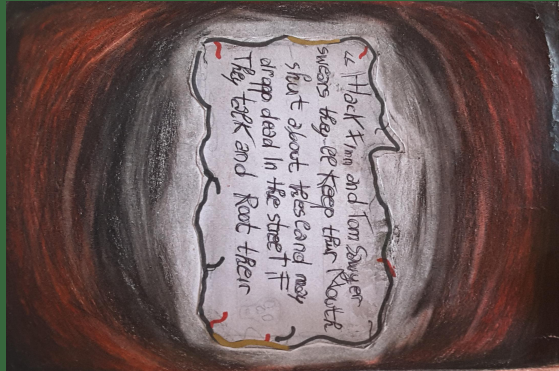 " Hack Finn and Tom Sawyer
swears they ll Keep thur Mouth
shut about thisand may
dropp dead In the street iF
They talk and Root their